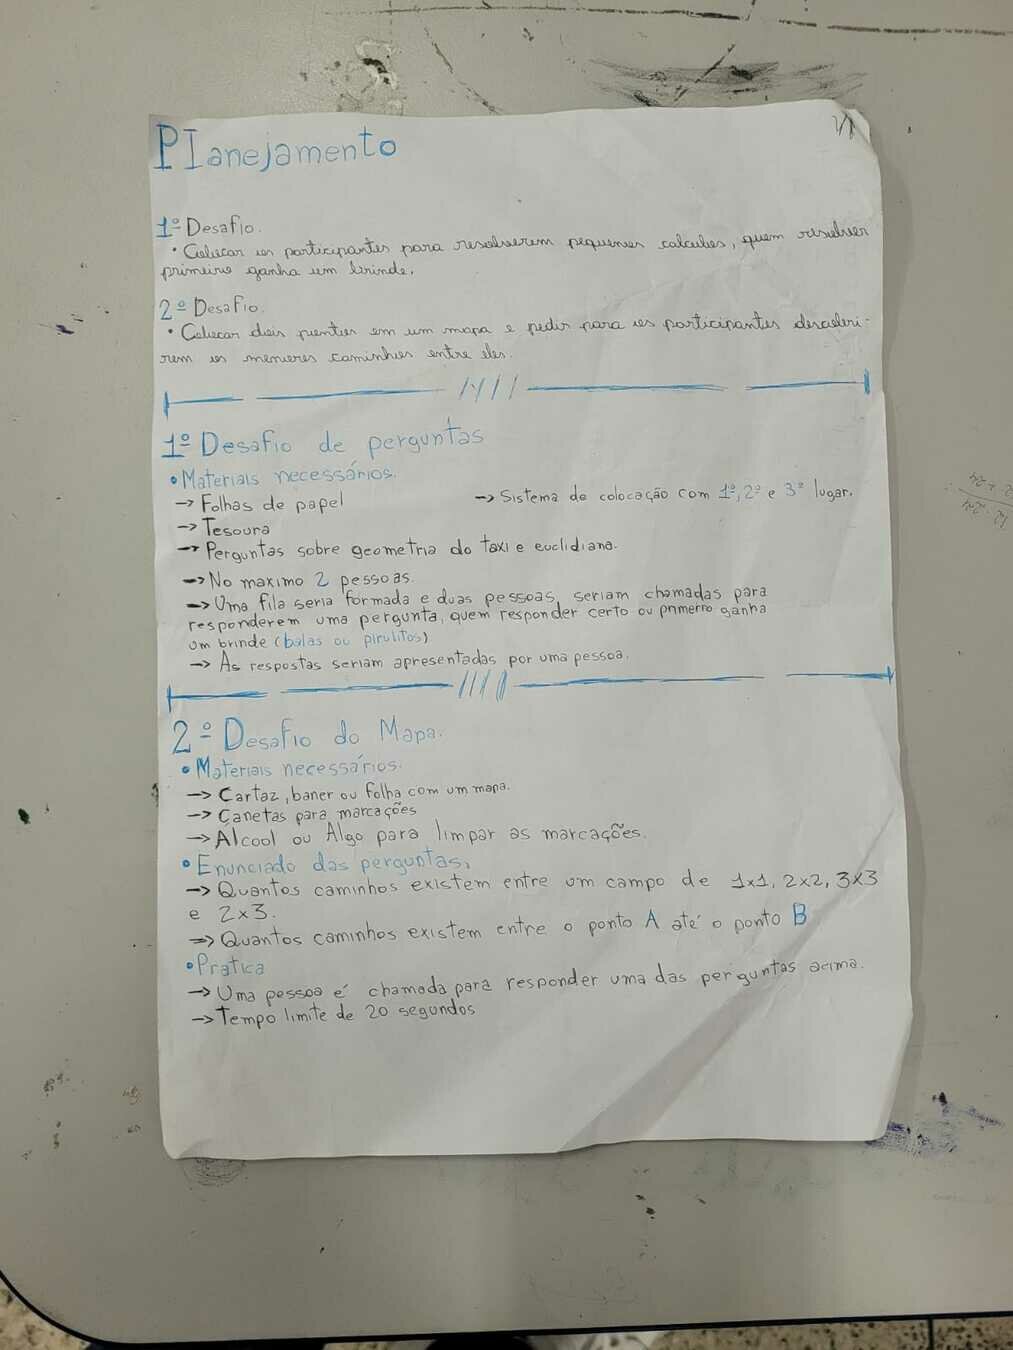 Planejamento
1º Desafio.
• Colocar os participantes para resolverem pequenos calculos, quem resolver
primeiro ganha um brinde.
2º Desafio.
• Colocar dois pontos em um mapa e pedir para os participantes descobri-
rem os menores caminhos entre eles.
1º Desafio de perguntas
• Materiais necessários.
→ Folhas de papel
→ Sistema de colocação com 1º, 2º e 3º lugar.
→ Tesoura
→ Perguntas sobre geometria do taxi e euclidiana.
→ No maximo 2 pessoas.
→ Uma fila seria formada e duas pessoas, seriam chamadas para
responderem uma pergunta, quem responder certo ou primeiro ganha
um brinde (balas ou pirulitos)
→ As respostas seriam apresentadas por uma pessoa.
2º Desafio do Mapa.
• Materiais necessários.
→ Cartaz, baner ou folha com um mapa.
→ Canetas para marcações
→ Alcool ou Algo para limpar as marcações.
• Enunciado das perguntas,
→ Quantos caminhos existem entre um campo de 1x1, 2x2, 3x3
e 2x3.
→ Quantos caminhos existem entre o ponto A até o ponto B
• Pratica
→ Uma pessoa é chamada para responder uma das perguntas acima.
→ Tempo limite de 20 segundos